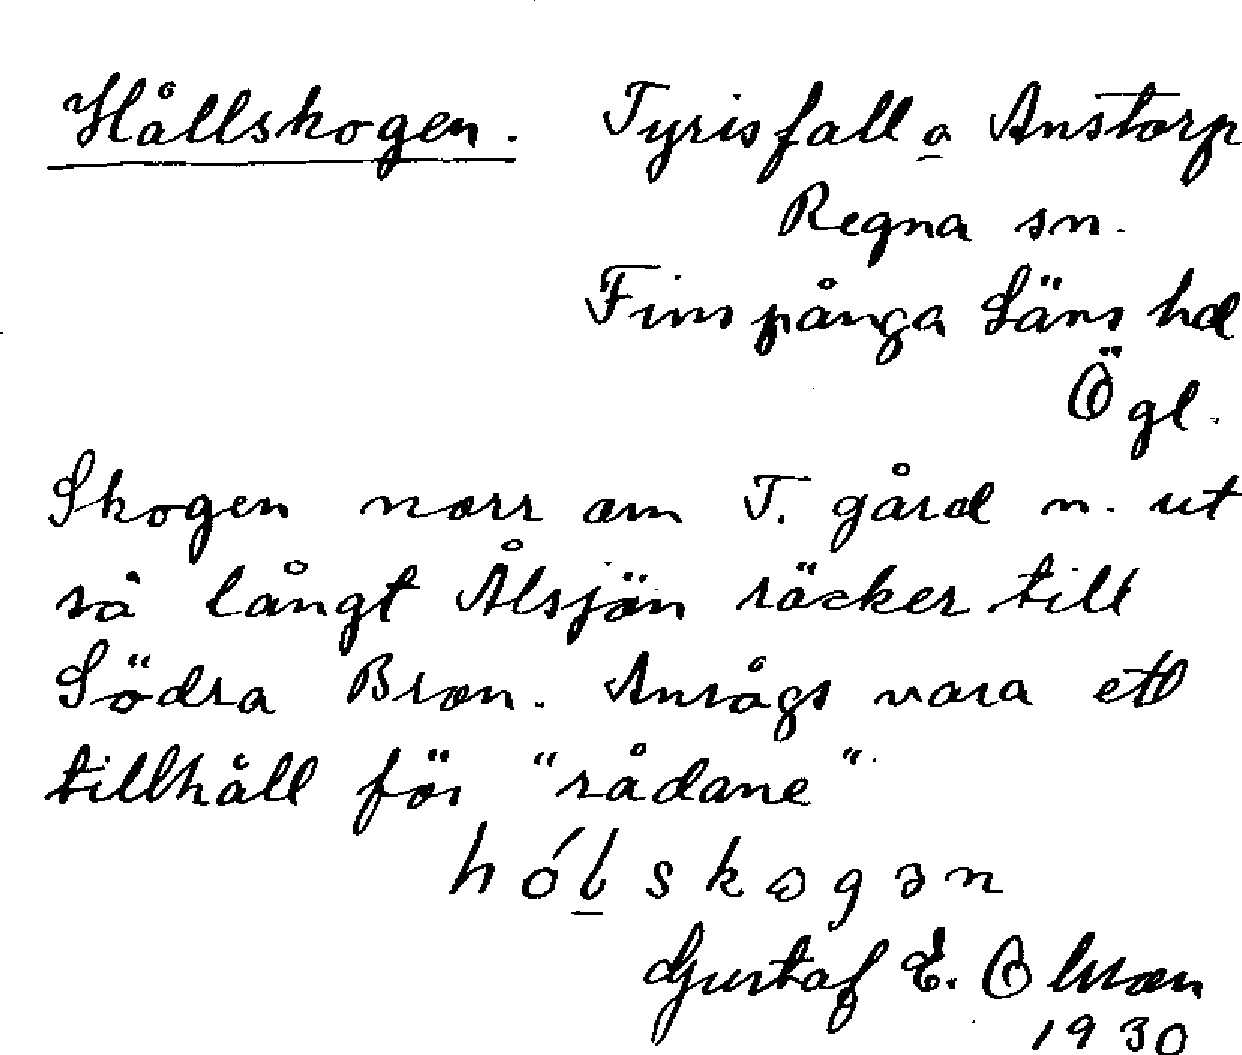 Hållskogen. Tyrisfall o Anstorp
Regna sn.
Finspånga Läns hd
Ögl.
Skogen norr om T. gård n. ut
så långt Ålsjön räcker till
Södra Bron. Ansågs vara ett
tillhåll för "rådane"
hólskogən
Gustaf E. Olsson
1930